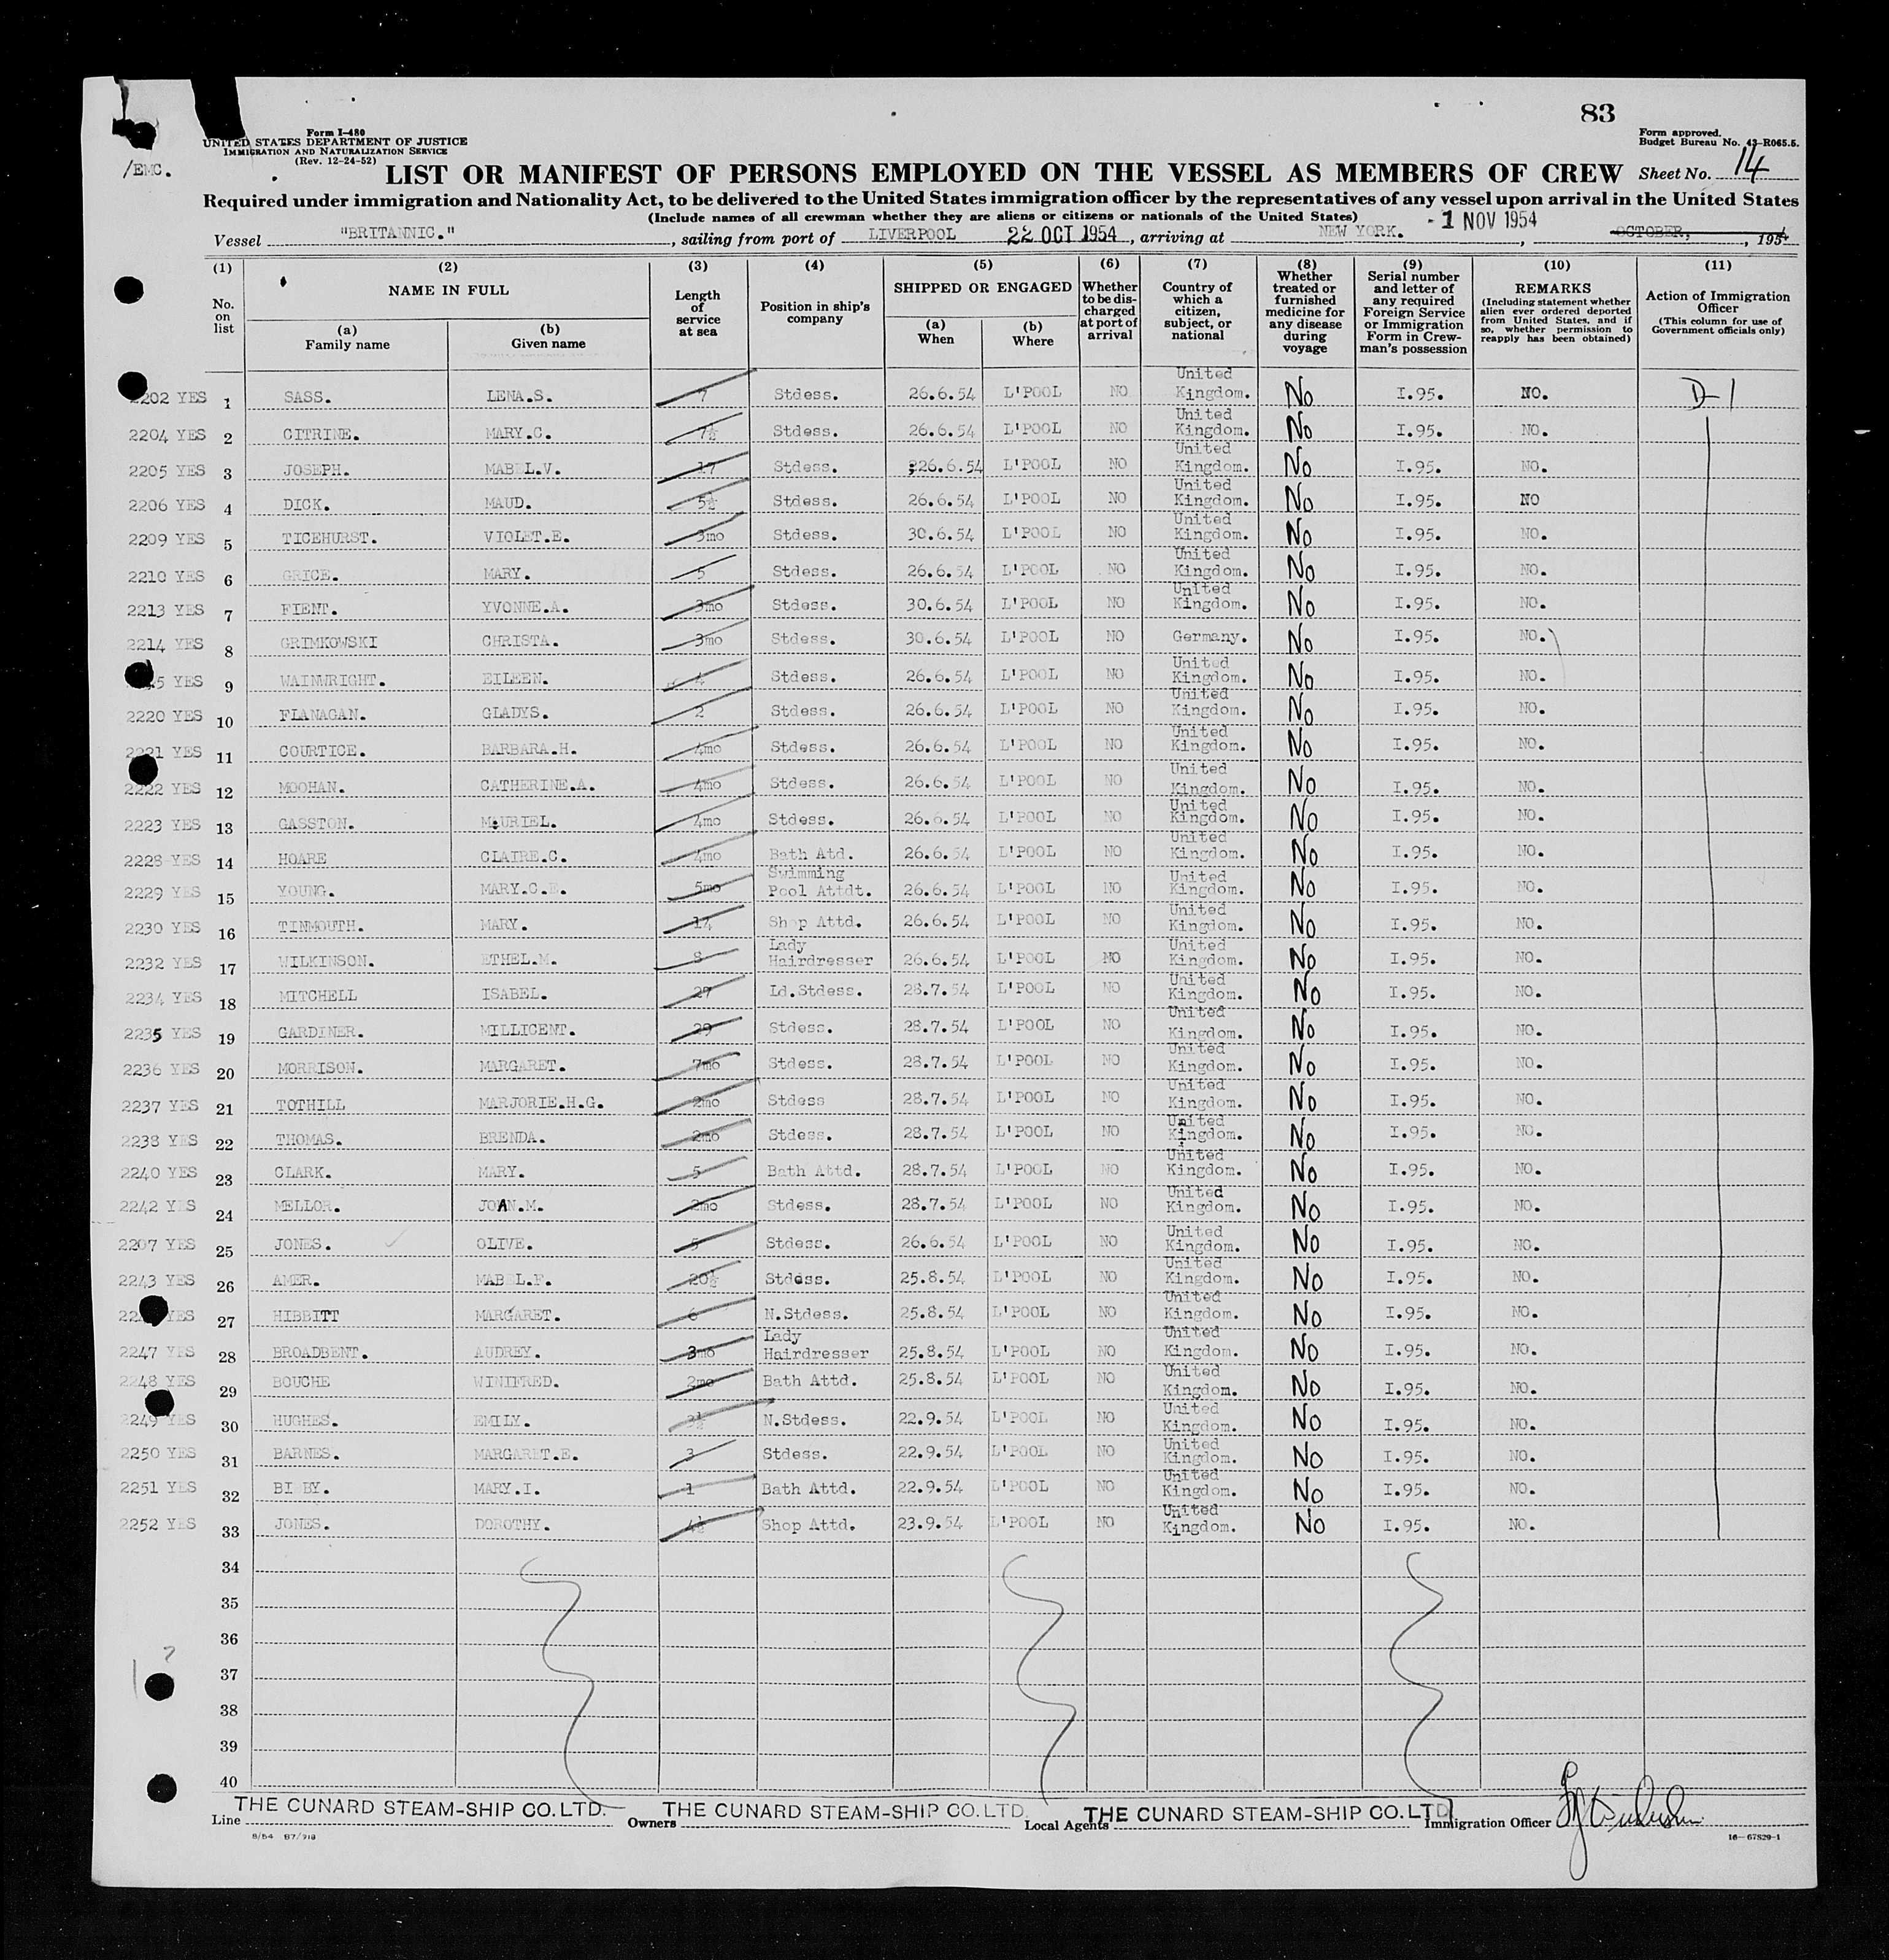 83
Form I-480
UNITED STATES DEPARTMENT OF JUSTICE
IMMIGRATION AND NATURALIZATION SERVICE
(Rev. 12-24-52)
Form approved.
Budget Bureau No. 43-R065.5.
/EMC.
LIST OR MANIFEST OF PERSONS EMPLOYED ON THE VESSEL AS MEMBERS OF CREW
Sheet No. 14
Required under immigration and Nationality Act, to be delivered to the United States immigration officer by the representatives of any vessel upon arrival in the United States
(Include names of all crewman whether they are aliens or citizens or nationals of the United States)
Vessel "BRITANNIC.", sailing from port of LIVERPOOL 22 OCT 1954, arriving at NEW YORK. - 1 NOV 1954, OCTOBER, , 1954
(1) (2) (3) (4) (5) (6) (7) (8) (9) (10) (11)
No. on list
NAME IN FULL
(a) Family name
(b) Given name
Length of service at sea
Position in ship's company
SHIPPED OR ENGAGED
(a) When
(b) Where
Whether to be discharged at port of arrival
Country of which a citizen, subject, or national
Whether treated or furnished medicine for any disease during voyage
Serial number and letter of any required Foreign Service or Immigration Form in Crewman's possession
REMARKS
(Including statement whether alien ever ordered deported from United States, and if so, whether permission to reapply has been obtained)
Action of Immigration Officer
(This column for use of Government officials only)
2202 YES 1 SASS. LENA.S. 7 Stdess. 26.6.54 L'POOL NO United Kingdom. No I.95. NO. D-1
2204 YES 2 CITRINE. MARY.C. 7½ Stdess. 26.6.54 L'POOL NO United Kingdom. No I.95. NO.
2205 YES 3 JOSEPH. MABEL.V. 17 Stdess. 26.6.54 L'POOL NO United Kingdom. No I.95. NO.
2206 YES 4 DICK. MAUD. 5½ Stdess. 26.6.54 L'POOL NO United Kingdom. No I.95. NO
2209 YES 5 TICEHURST. VIOLET.E. 3mo Stdess. 30.6.54 L'POOL NO United Kingdom. No I.95. NO.
2210 YES 6 GRICE. MARY. 5 Stdess. 26.6.54 L'POOL NO United Kingdom. No I.95. NO.
2213 YES 7 FIENT. YVONNE.A. 3mo Stdess. 30.6.54 L'POOL NO United Kingdom. No I.95. NO.
2214 YES 8 GRIMKOWSKI CHRISTA. 3mo Stdess. 30.6.54 L'POOL NO Germany. No I.95. NO.
5 YES 9 WAINWRIGHT. EILEEN. 4 Stdess. 26.6.54 L'POOL NO United Kingdom. No I.95. NO.
2220 YES 10 FLANAGAN. GLADYS. 2 Stdess. 26.6.54 L'POOL NO United Kingdom. No I.95. NO.
2221 YES 11 COURTICE. BARBARA.H. 4mo Stdess. 26.6.54 L'POOL NO United Kingdom. No I.95. NO.
2222 YES 12 MOOHAN. CATHERINE.A. 4mo Stdess. 26.6.54 L'POOL NO United Kingdom. No I.95. NO.
2223 YES 13 GASSTON. MAURIEL. 4mo Stdess. 26.6.54 L'POOL NO United Kingdom. No I.95. NO.
2228 YES 14 HOARE CLAIRE.C. 4mo Bath Atd. 26.6.54 L'POOL NO United Kingdom. No I.95. NO.
2229 YES 15 YOUNG. MARY.C.E. 5mo Swimming Pool Attdt. 26.6.54 L'POOL NO United Kingdom. No I.95. NO.
2230 YES 16 TINMOUTH. MARY. 14 Shop Attd. 26.6.54 L'POOL NO United Kingdom. No I.95. NO.
2232 YES 17 WILKINSON. ETHEL.M. 8 Lady Hairdresser 26.6.54 L'POOL NO United Kingdom. No I.95. NO.
2234 YES 18 MITCHELL ISABEL. 27 Ld.Stdess. 28.7.54 L'POOL NO United Kingdom. No I.95. NO.
2235 YES 19 GARDINER. MILLICENT. 29 Stdess. 28.7.54 L'POOL NO United Kingdom. No I.95. NO.
2236 YES 20 MORRISON. MARGARET. 7mo Stdess. 28.7.54 L'POOL NO United Kingdom. No I.95. NO.
2237 YES 21 TOTHILL MARJORIE.H.G. 2mo Stdess 28.7.54 L'POOL NO United Kingdom. No I.95. NO.
2238 YES 22 THOMAS. BRENDA. 2mo Stdess. 28.7.54 L'POOL NO United Kingdom. No I.95. NO.
2240 YES 23 CLARK. MARY. 5 Bath Attd. 28.7.54 L'POOL NO United Kingdom. No I.95. NO.
2242 YES 24 MELLOR. JOAN.M. 2mo Stdess. 28.7.54 L'POOL NO United Kingdom. No I.95. NO.
2207 YES 25 JONES. OLIVE. 5 Stdess. 26.6.54 L'POOL NO United Kingdom. No I.95. NO.
2243 YES 26 AMER. MABEL.F. 20½ Stdess. 25.8.54 L'POOL NO United Kingdom. No I.95. NO.
YES 27 HIBBITT MARGARET. 6 N.Stdess. 25.8.54 L'POOL NO United Kingdom. No I.95. NO.
2247 YES 28 BROADBENT. AUDREY. 3mo Lady Hairdresser 25.8.54 L'POOL NO United Kingdom. No I.95. NO.
2248 YES 29 BOUCHE WINIFRED. 2mo Bath Attd. 25.8.54 L'POOL NO United Kingdom. No I.95. NO.
2249 YES 30 HUGHES. EMILY. 3½ N.Stdess. 22.9.54 L'POOL NO United Kingdom. No I.95. NO.
2250 YES 31 BARNES. MARGARET.E. 3 Stdess. 22.9.54 L'POOL NO United Kingdom. No I.95. NO.
2251 YES 32 BI BY. MARY.I. 1 Bath Attd. 22.9.54 L'POOL NO United Kingdom. No I.95. NO.
2252 YES 33 JONES. DOROTHY. 4½ Shop Attd. 23.9.54 L'POOL NO United Kingdom. No I.95. NO.
34
35
36
37
38
39
40
Line THE CUNARD STEAM-SHIP CO. LTD. Owners THE CUNARD STEAM-SHIP CO. LTD. Local Agents THE CUNARD STEAM-SHIP CO. LTD Immigration Officer
8/54 B7/918
16—67829-1